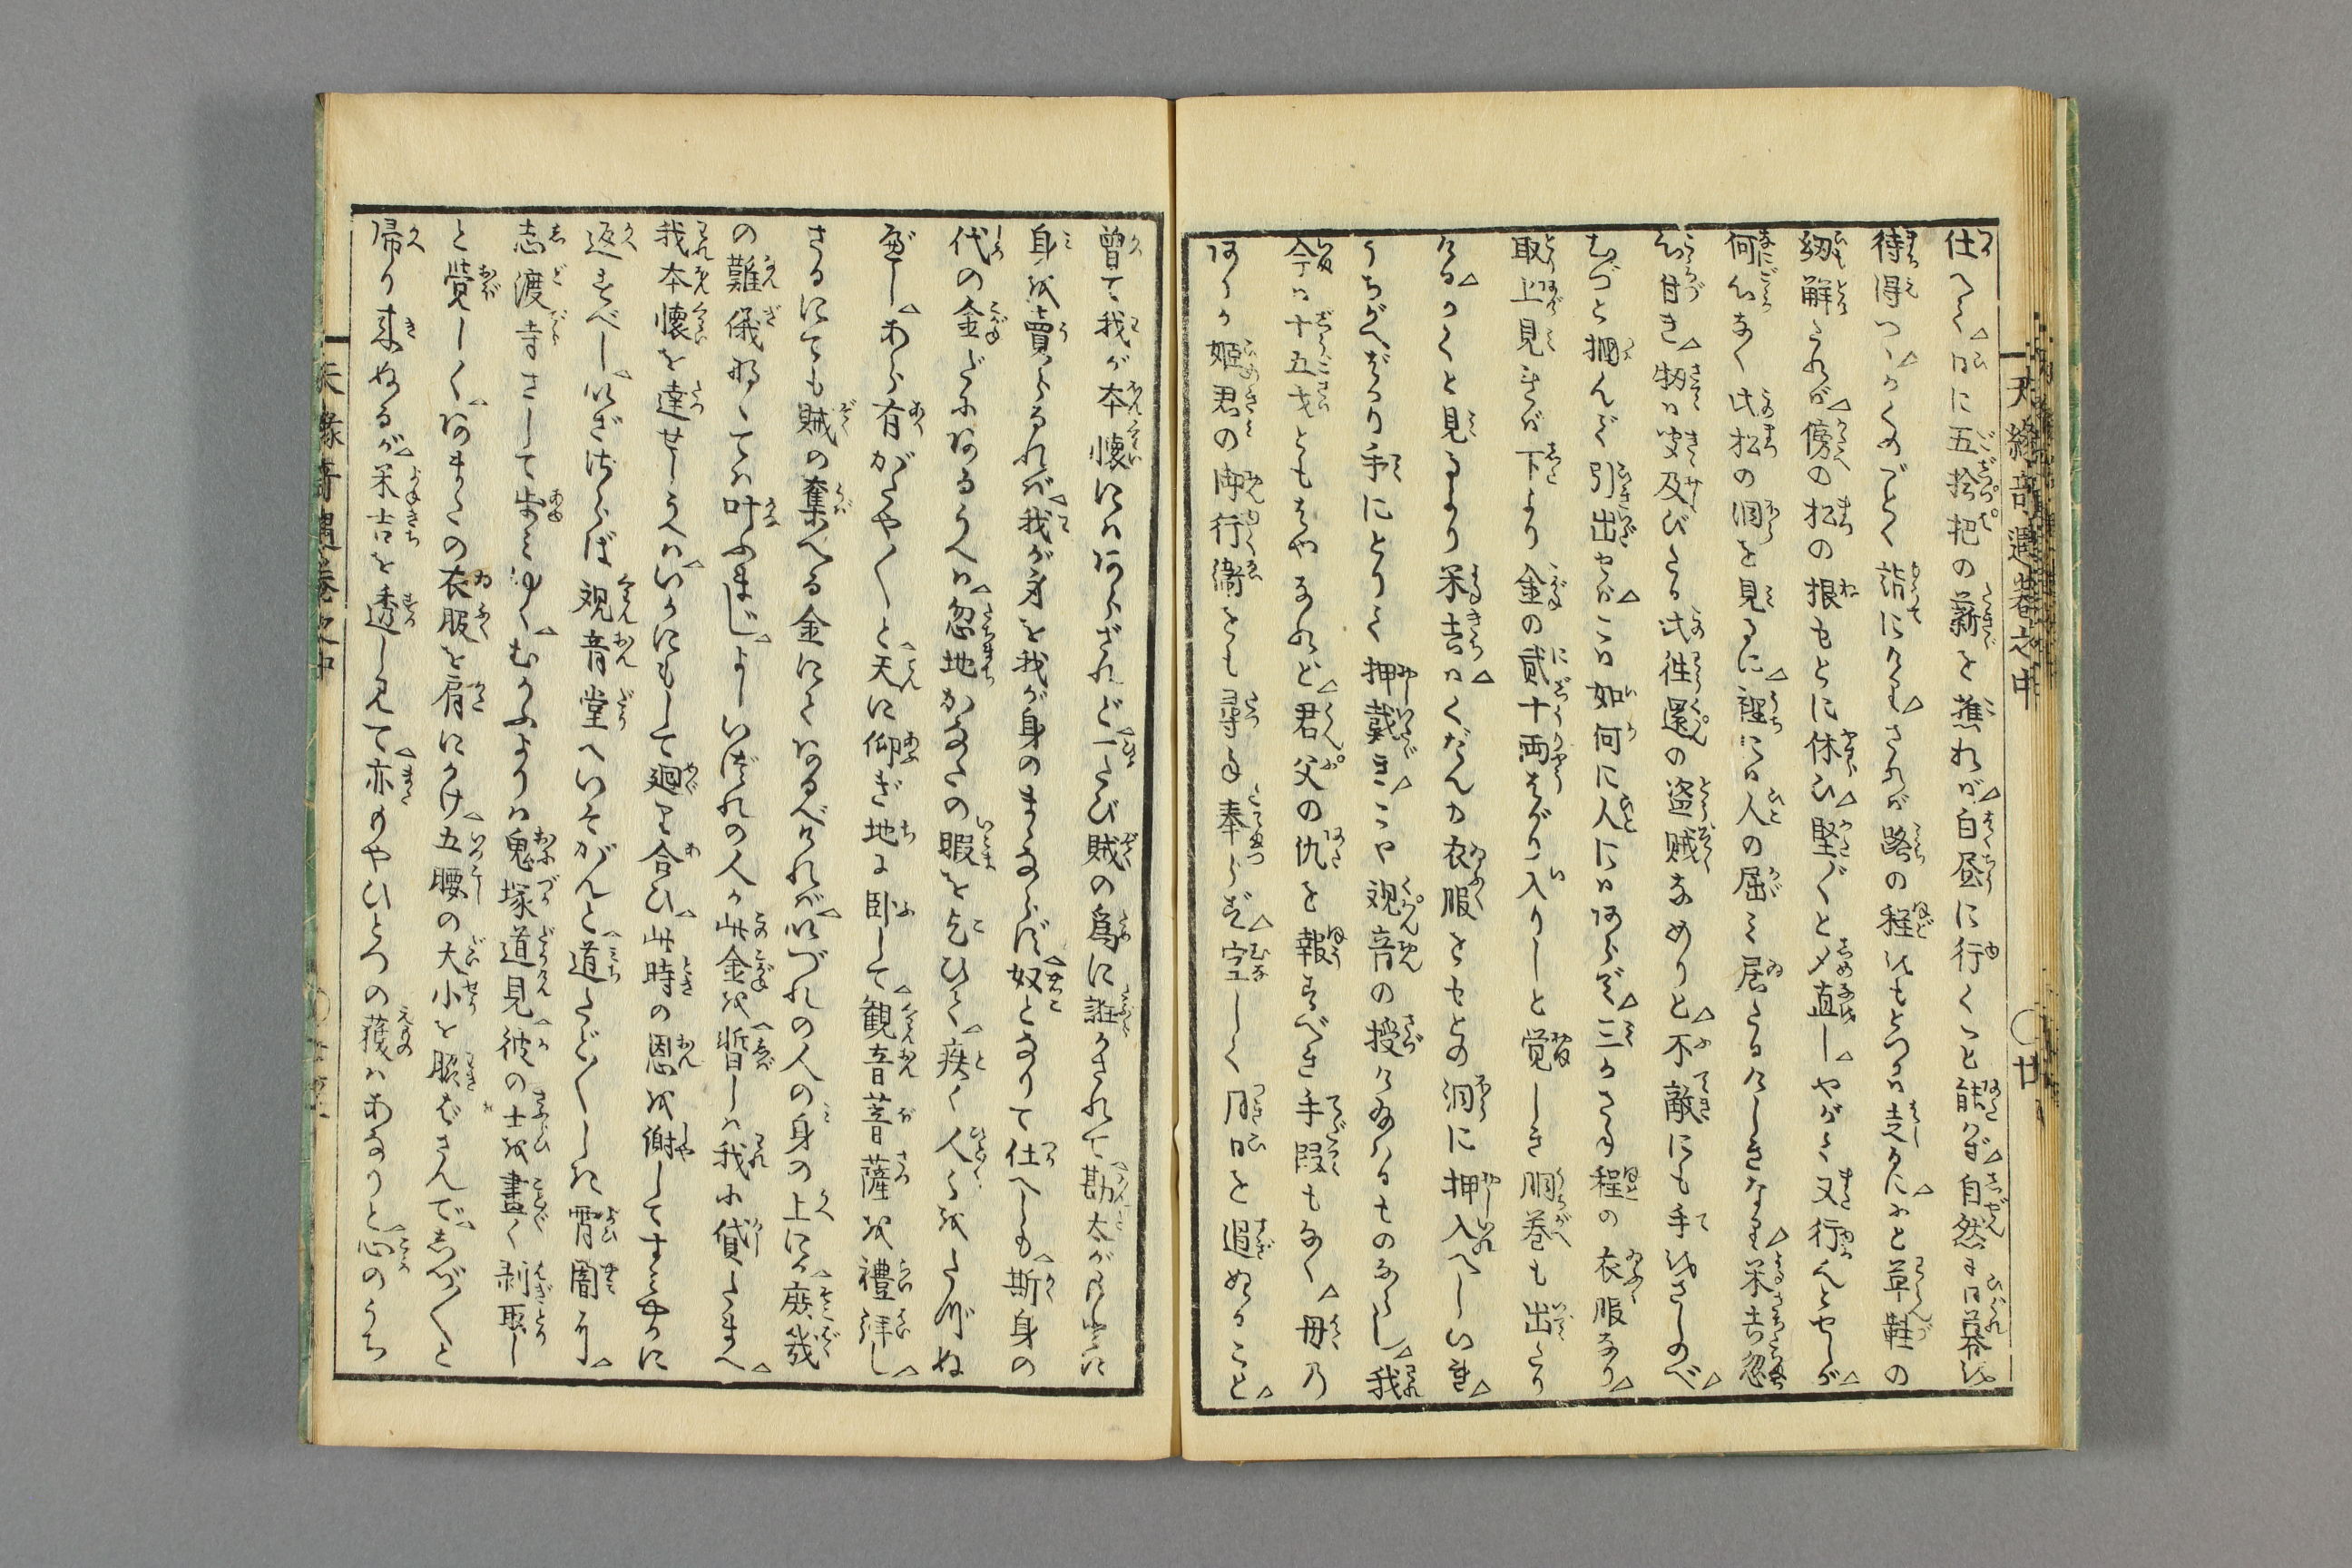 仕へて日に五拾把の薪を樵れば白昼に行くこと能はず自然に日暮を
待得つゝかくのごとく詣にけりされば路の程をもとつかは走るにふと草鞋の
紐解たれば傍の松の根もとに休ひ堅ぐと〆直しやがて又行んとせしが
何心なく此松の洞を見るに裡には人の屈み居たるけしきなり米吉忽
心付き扨は史及びたる此往還の盗賊なめりと不敵にも手をさしのべ
むづと掴んで引出せばこは如何に人にはあらず三かさね程の衣服なり
取上見れば下より金の貳十両ばかり入りしと覚しき胴巻も出たり
けるかくと見るより米吉はくだんの衣服をもとの洞に押入へしいれ
うちがへばかり手にとりて押戴きこや観音の授け給はるものならし我
今は十五才ともはやなれど君父の仇を報ずべき手段もなく母乃
あるか姫君の御行衛をも尋ね奉らず空しく月日を過ぬること
曽て我が本懐にはあらざれど一たび賊の為に誑かされて勘太が方に
身を賣らるれば我が身を我が身のまゝならず奴となりて仕へしも斯身の
代の金だにあるうへは忽地かなたの暇を乞ひて疾く人々をたづぬ
べしあら有がたやと天に仰ぎ地に臥して観音菩薩を禮拝し
さるにても賊の奪へる金にてはあるべけれがいづれの人の身の上にか廃哉
の難儀なくては叶ふまじよしいづれの人か此金を暫しは我に貸たまへ
我本懐を達せしうへはいかにもして廻り合ひ此時の恩を謝してすみやかに
返すべしいざさらば観音堂へいそがんと道たどしき宵闇に
志渡寺さして歩みゆくむかふよりは鬼塚道見彼の士を盡く剥取し
と覚しくあまたの衣服を肩にかけ五腰の大小を腋ばさんでしづ〱と
帰り来ぬるが米吉を透し見て亦もやひとつの獲はあなりと心のうち
天縁奇遇巻之中
廿